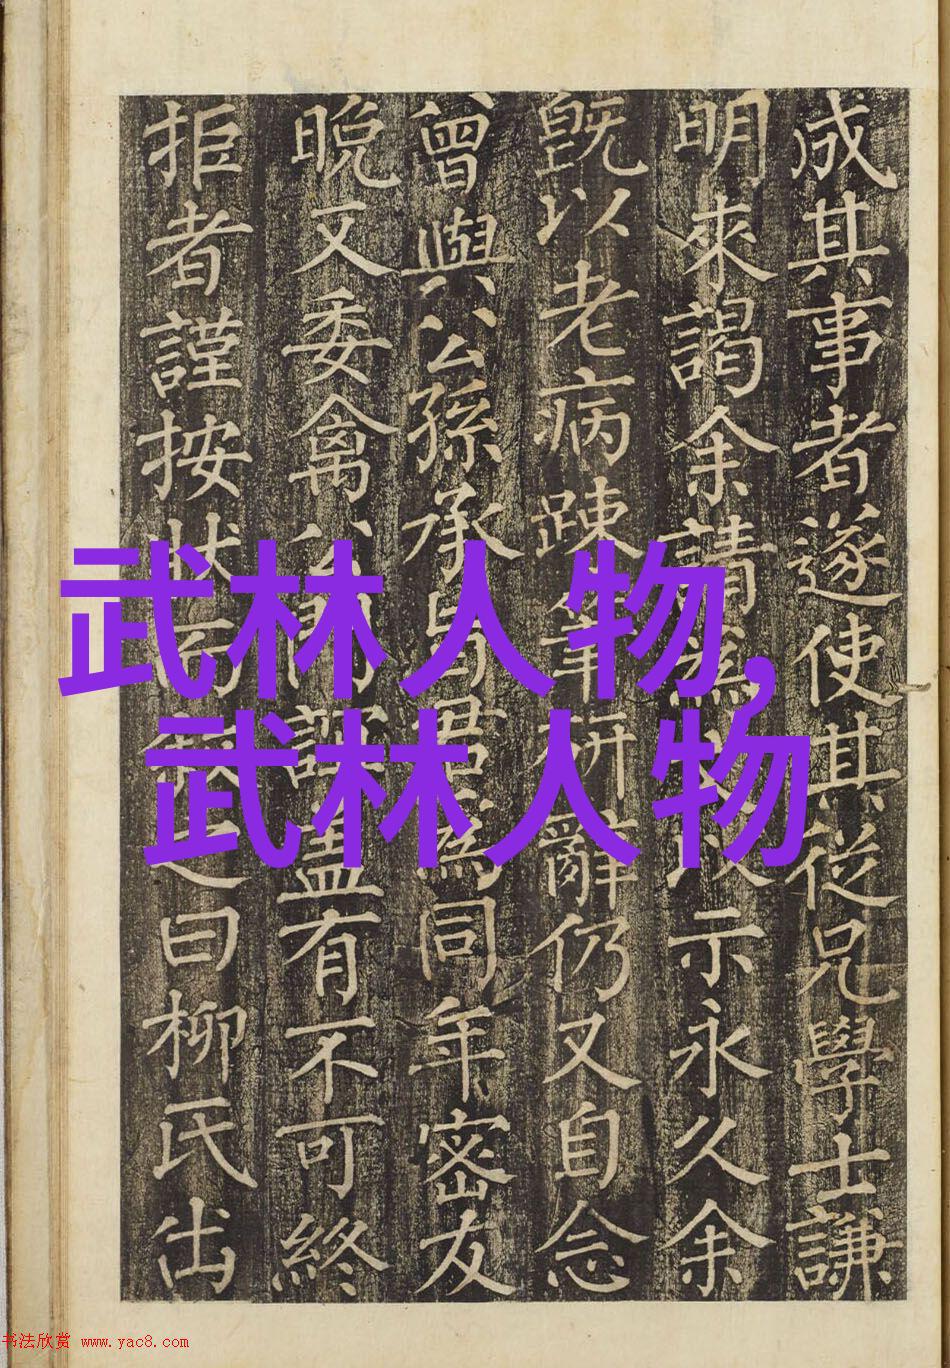 成其事者遂使其從兄學士謙
明來謁余請為示永久余
旣以老病踈筆研辭仍又自念
曾與公孫承旨君為同年密友
晚又委禽誼盖有不可終
拒者謹按狀而敘之曰柳氏出
武林人物,
武林人物
书法欣赏 www.yac8.com